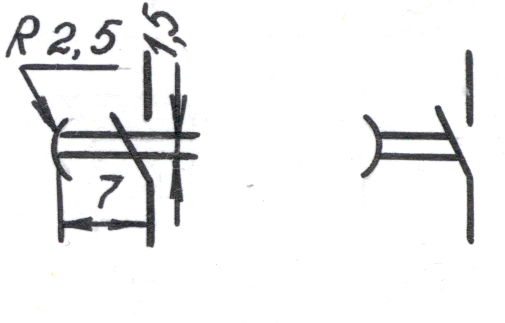 R 2,5
1,5
7